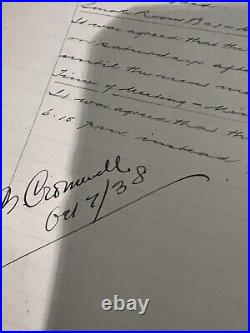 Smoke Room Bar
It was agreed that the
on saturday aft
until the
Time of Meeting
It was agreed that th
6.15 p.m. instead
B Cromwell
Oct 7/38